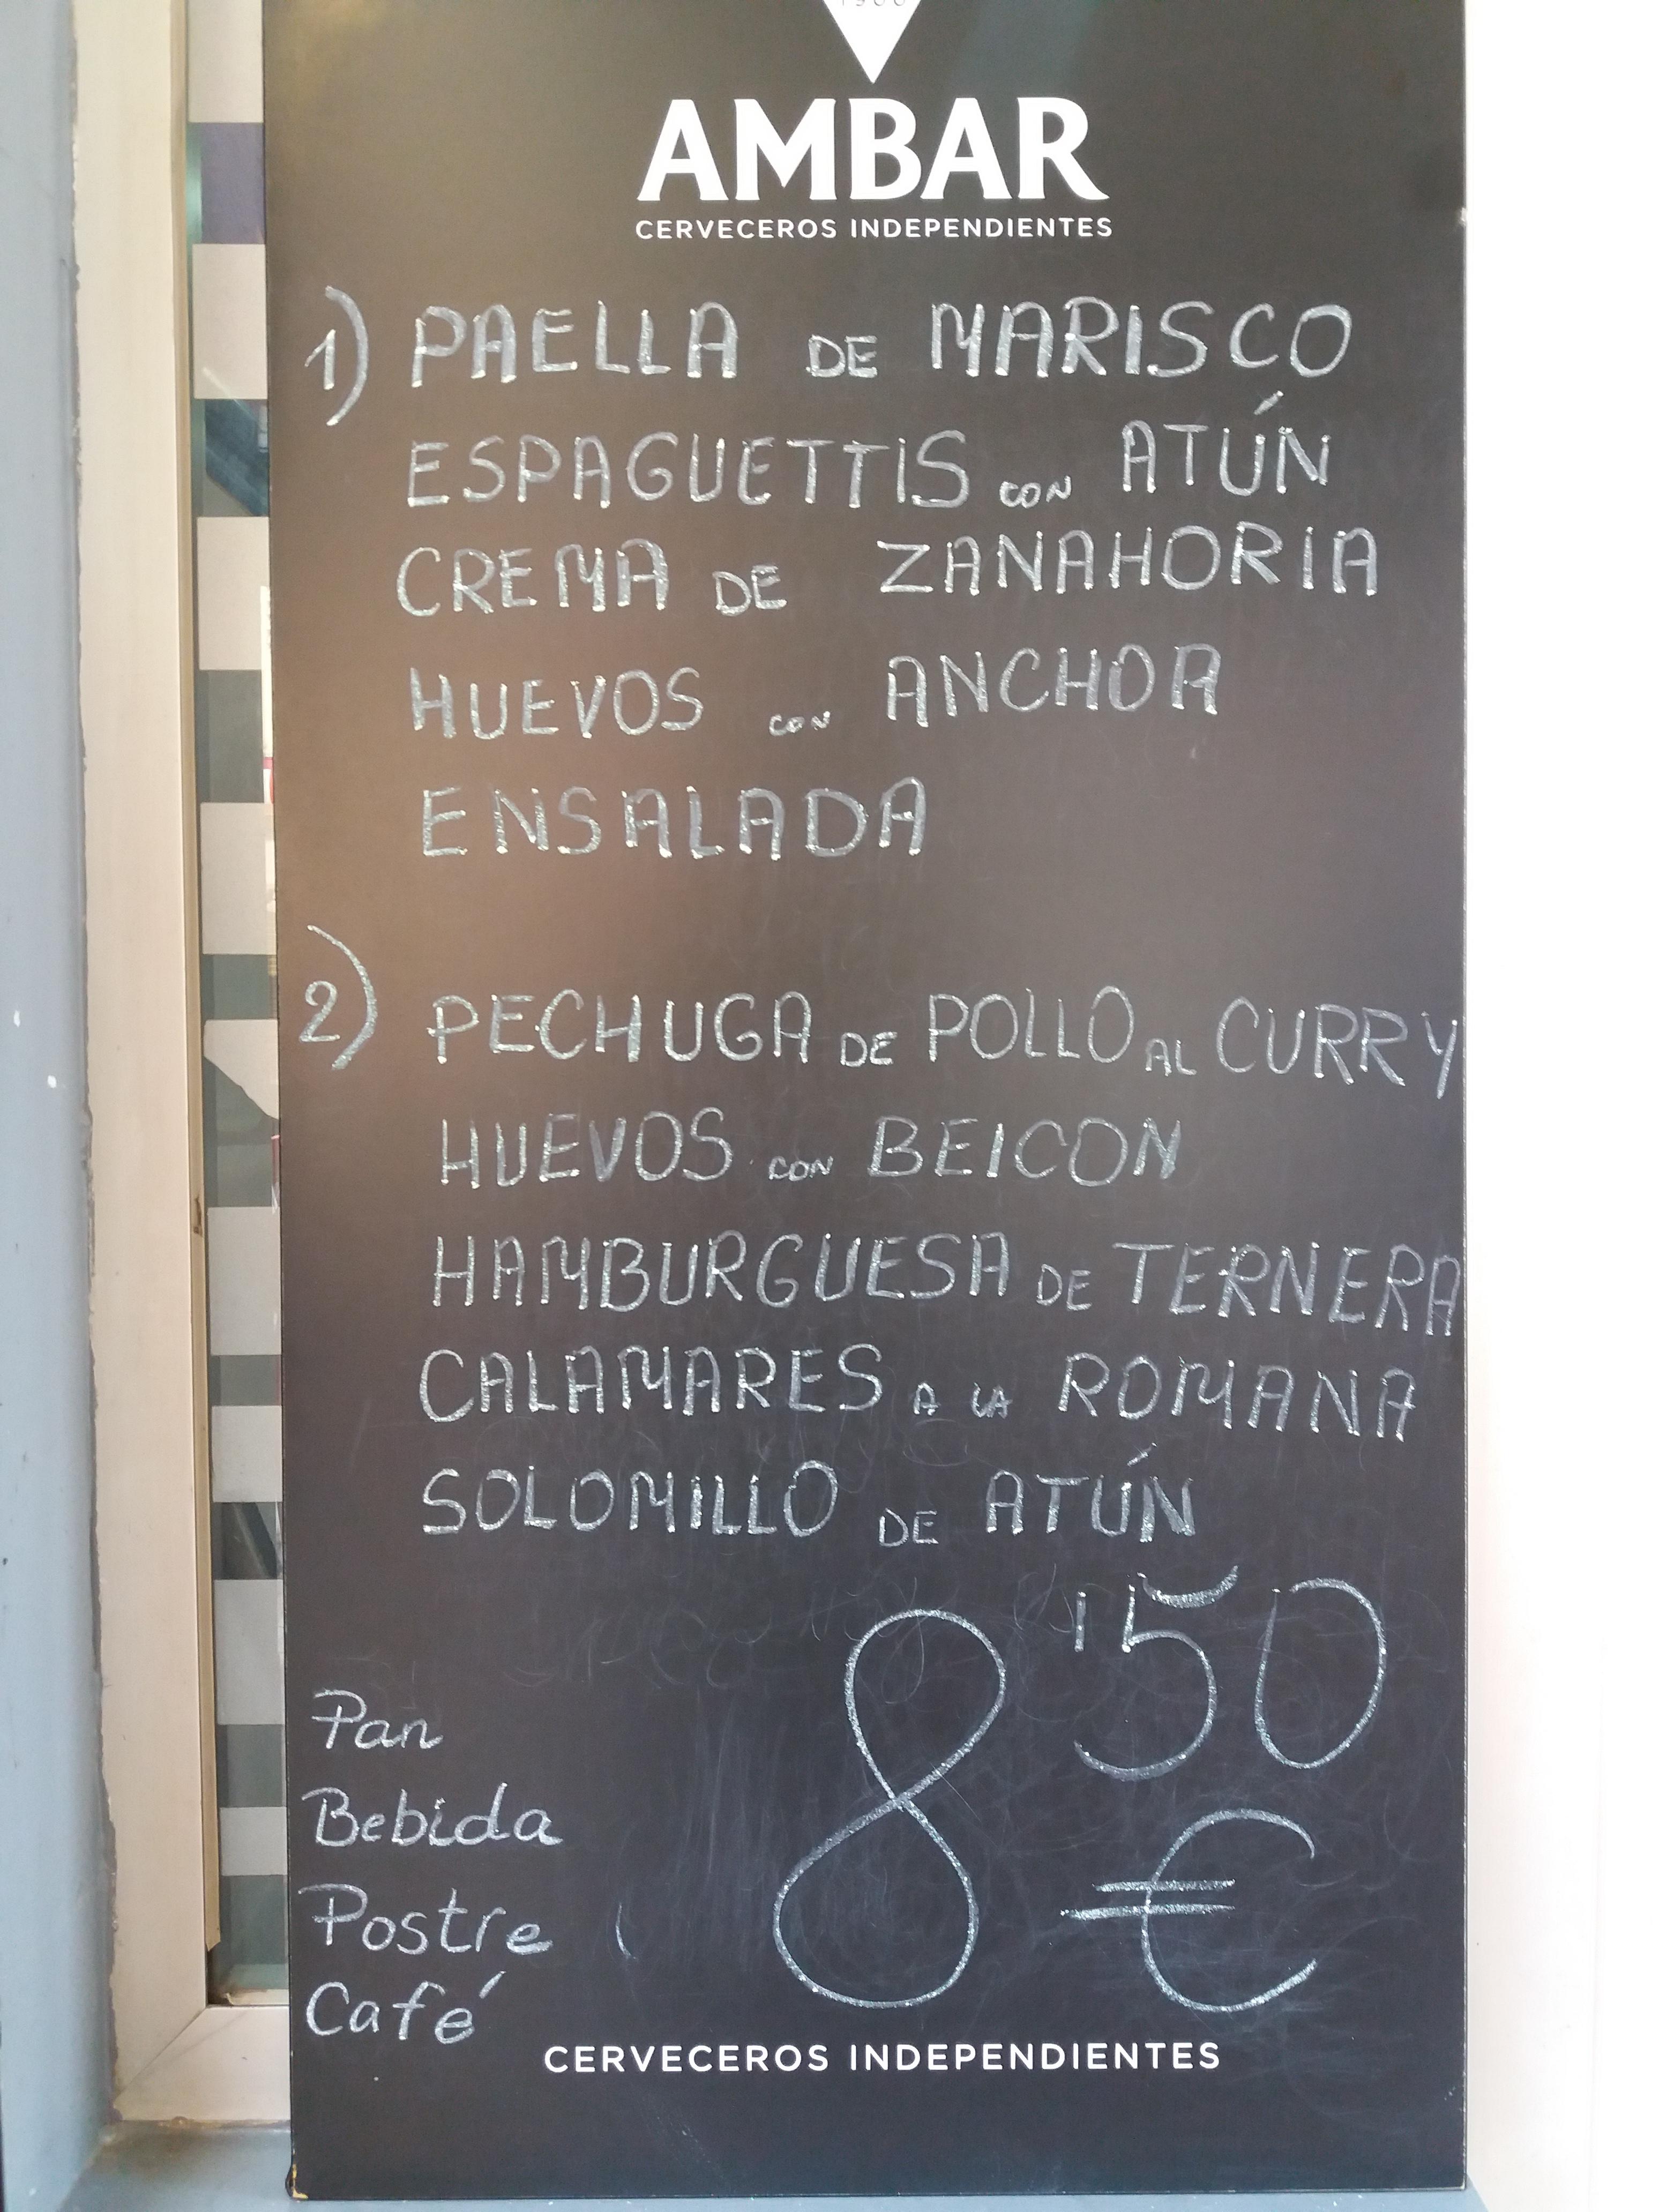 1900
AMBAR
CERVECEROS INDEPENDIENTES
1) PAELLA DE MARISCO
ESPAGUETTIS CON ATÚN
CREMA DE ZANAHORIA
HUEVOS CON ANCHOA
ENSALADA
2) PECHUGA DE POLLO AL CURRY
HUEVOS CON BEICON
HAMBURGUESA DE TERNERA
CALAMARES A LA ROMANA
SOLOMILLO DE ATÚN
8'50 €
Pan
Bebida
Postre
Café
CERVECEROS INDEPENDIENTES